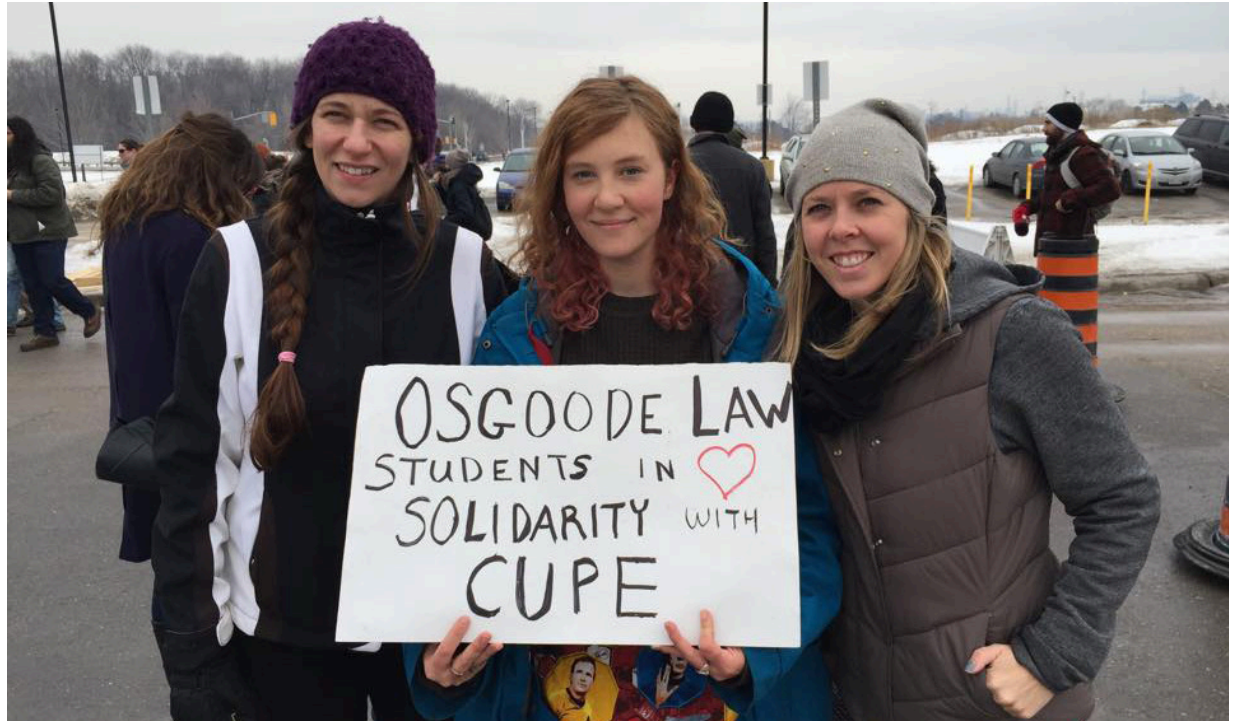 OSGOODE LAW
STUDENTS IN
SOLIDARITY WITH
CUPE